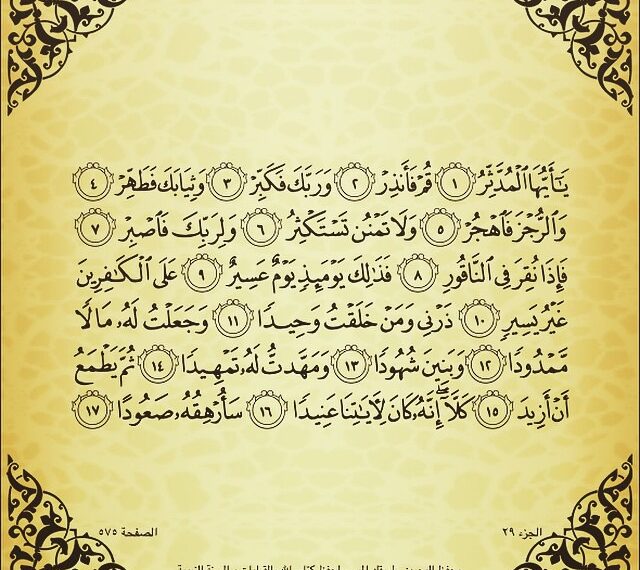 يَـٰٓأَيُّهَا ٱلْمُدَّثِّرُ ١ قُمْ فَأَنذِرْ ٢ وَرَبَّكَ فَكَبِّرْ ٣ وَثِيَابَكَ فَطَهِّرْ ٤
وَٱلرُّجْزَ فَٱهْجُرْ ٥ وَلَا تَمْنُن تَسْتَكْثِرُ ٦ وَلِرَبِّكَ فَٱصْبِرْ ٧
فَإِذَا نُقِرَ فِى ٱلنَّاقُورِ ٨ فَذَٰلِكَ يَوْمَئِذٍ يَوْمٌ عَسِيرٌ ٩ عَلَى ٱلْكَـٰفِرِينَ
غَيْرُ يَسِيرٍ ١٠ ذَرْنِى وَمَنْ خَلَقْتُ وَحِيدًا ١١ وَجَعَلْتُ لَهُۥ مَالًا
مَّمْدُودًا ١٢ وَبَنِينَ شُهُودًا ١٣ وَمَهَّدتُّ لَهُۥ تَمْهِيدًا ١٤ ثُمَّ يَطْمَعُ
أَنْ أَزِيدَ ١٥ كَلَّآ ۖ إِنَّهُۥ كَانَ لِـَٔايَـٰتِنَا عَنِيدًا ١٦ سَأُرْهِقُهُۥ صَعُودًا ١٧
الجزء ٢٩ الصفحة ٥٧٥